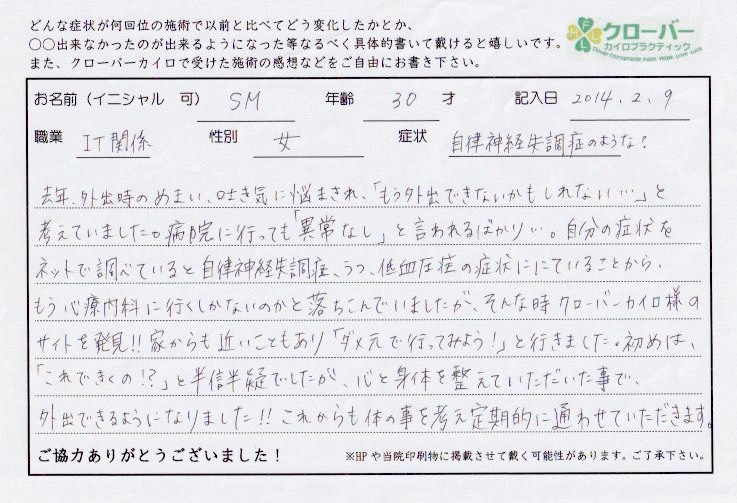 どんな症状が何回位の施術で以前と比べてどう変化したかとか、
〇〇出来なかったのが出来るようになった等なるべく具体的書いて戴けると嬉しいです。
また、クローバーカイロで受けた施術の感想などをご自由にお書き下さい。
クローバー
カイロプラクティック
Clover Chiropractic Faith Hope Love Luck
お名前(イニシャル 可) SM 年齢 30 才 記入日 2014.2.9
職業 IT関係 性別 女 症状 自律神経失調症のような?
去年、外出時のめまい、吐き気に悩まされ、「もう外出できないかもしれない…」と
考えていました。病院に行っても「異常なし」と言われるばかり…。自分の症状を
ネットで調べていると自律神経失調症、うつ、低血圧症の症状ににていることから、
もう心療内科に行くしかないのかと落ちこんでいましたが、そんな時クローバーカイロ様の
サイトを発見!!家からも近いこともあり「ダメ元で行ってみよう!」と行きました。初めは、
「これできくの!?」と半信半疑でしたが、心と身体を整えていただいた事で、
外出できるようになりました!!これからも体の事を考え定期的に通わせていただきます。
ご協力ありがとうございました!
※HPや当院印刷物に掲載させて戴く可能性があります。ご了承下さい。